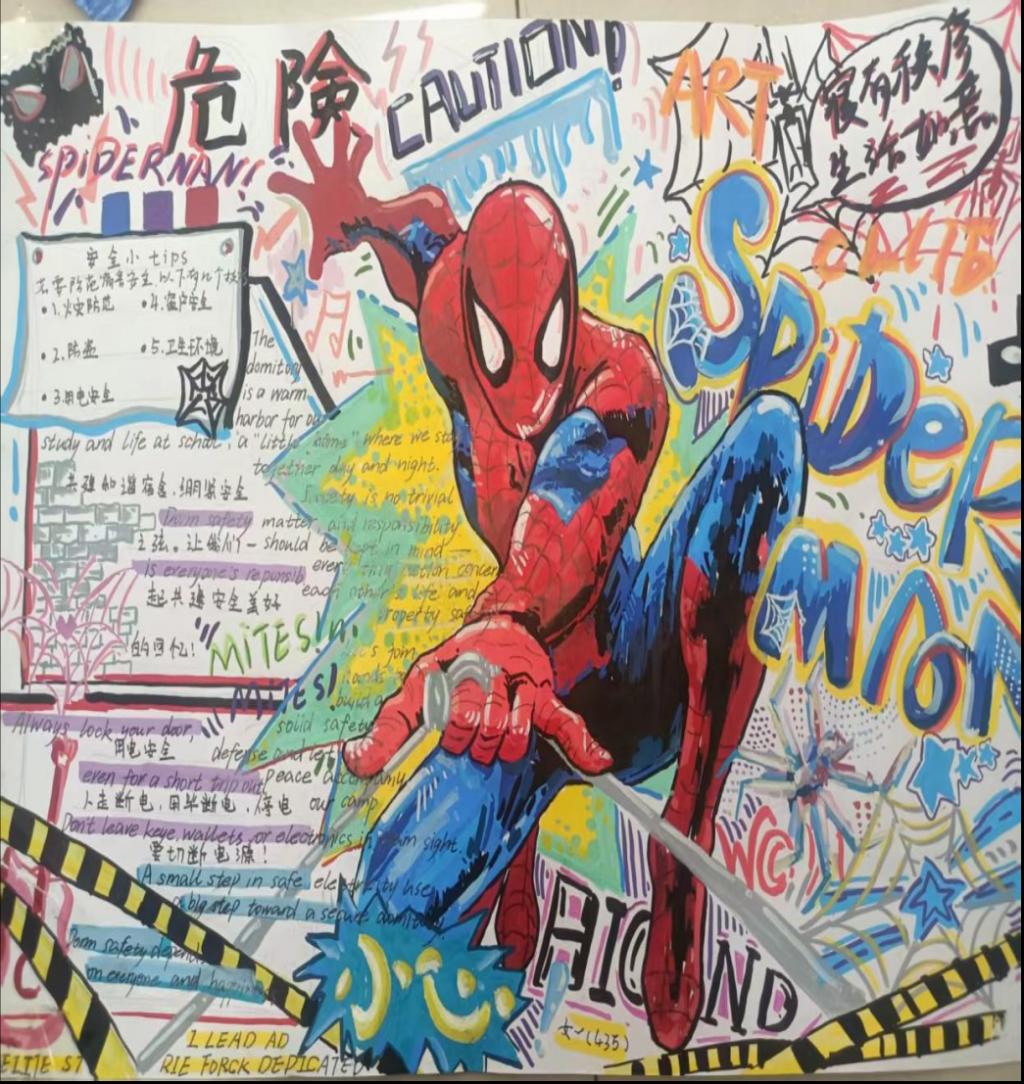 危險
CAUTION!
ART
寝有秩彦
生活如意
SPiDERNAN!
安全小tips
1.火灾防范
4.窗户安全
2.防盗
5.卫生环境
3.用电安全
SPiDER
MAN
The
domitory
is a warm
harbor for our
study and life at school, a "little home" where we stay
together day and night.
共建和谐宿舍,绷紧安全
Safety is no trivial
Dorm safety
matter, and responsibility
之弦。让我们一
should be kept in mind—
is everyone's reponsib
each other's life and
property safe
起共建安全美好
的回忆!
MiTES!
MiTES!
build a
solid safety
Always lock your door,
用电安全
defense and let
even for a short trip out
peace accompany
人走断电,用毕断电,停电
our camp
Don't leave keye, wallets, or electronics in plain sight.
要切断电源!
A small step in safe electricity use,
a big step toward a secure domitory.
Dorm safety depends
on everyone and
WC
女一(435)
1 LEAD AD
ELITE ST
RIE FORCK DEDICATED